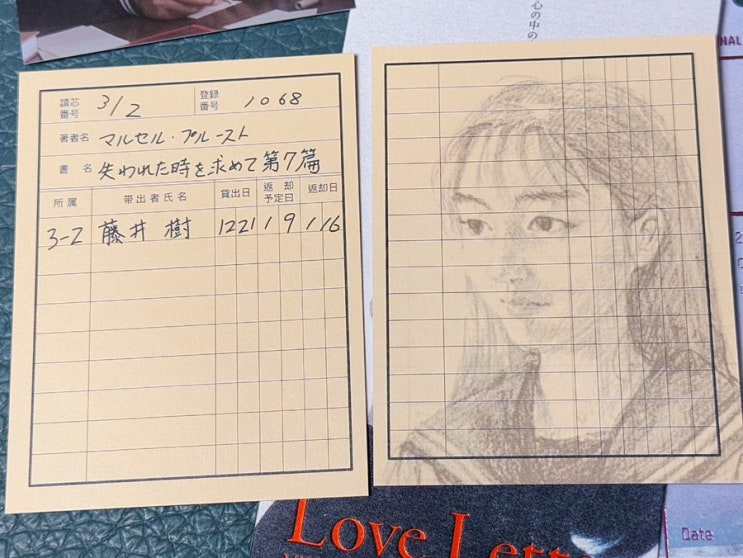 心の中の
NAL
請芯番号 3/2 登録番号 1068
著者名 マルセル・プルースト
書名 失われた時を求めて第7篇
所属 帯出者氏名 貸出日 返却予定日 返却日
3-2 藤井 樹 1221 1 9 1 16
Love Lett
Date